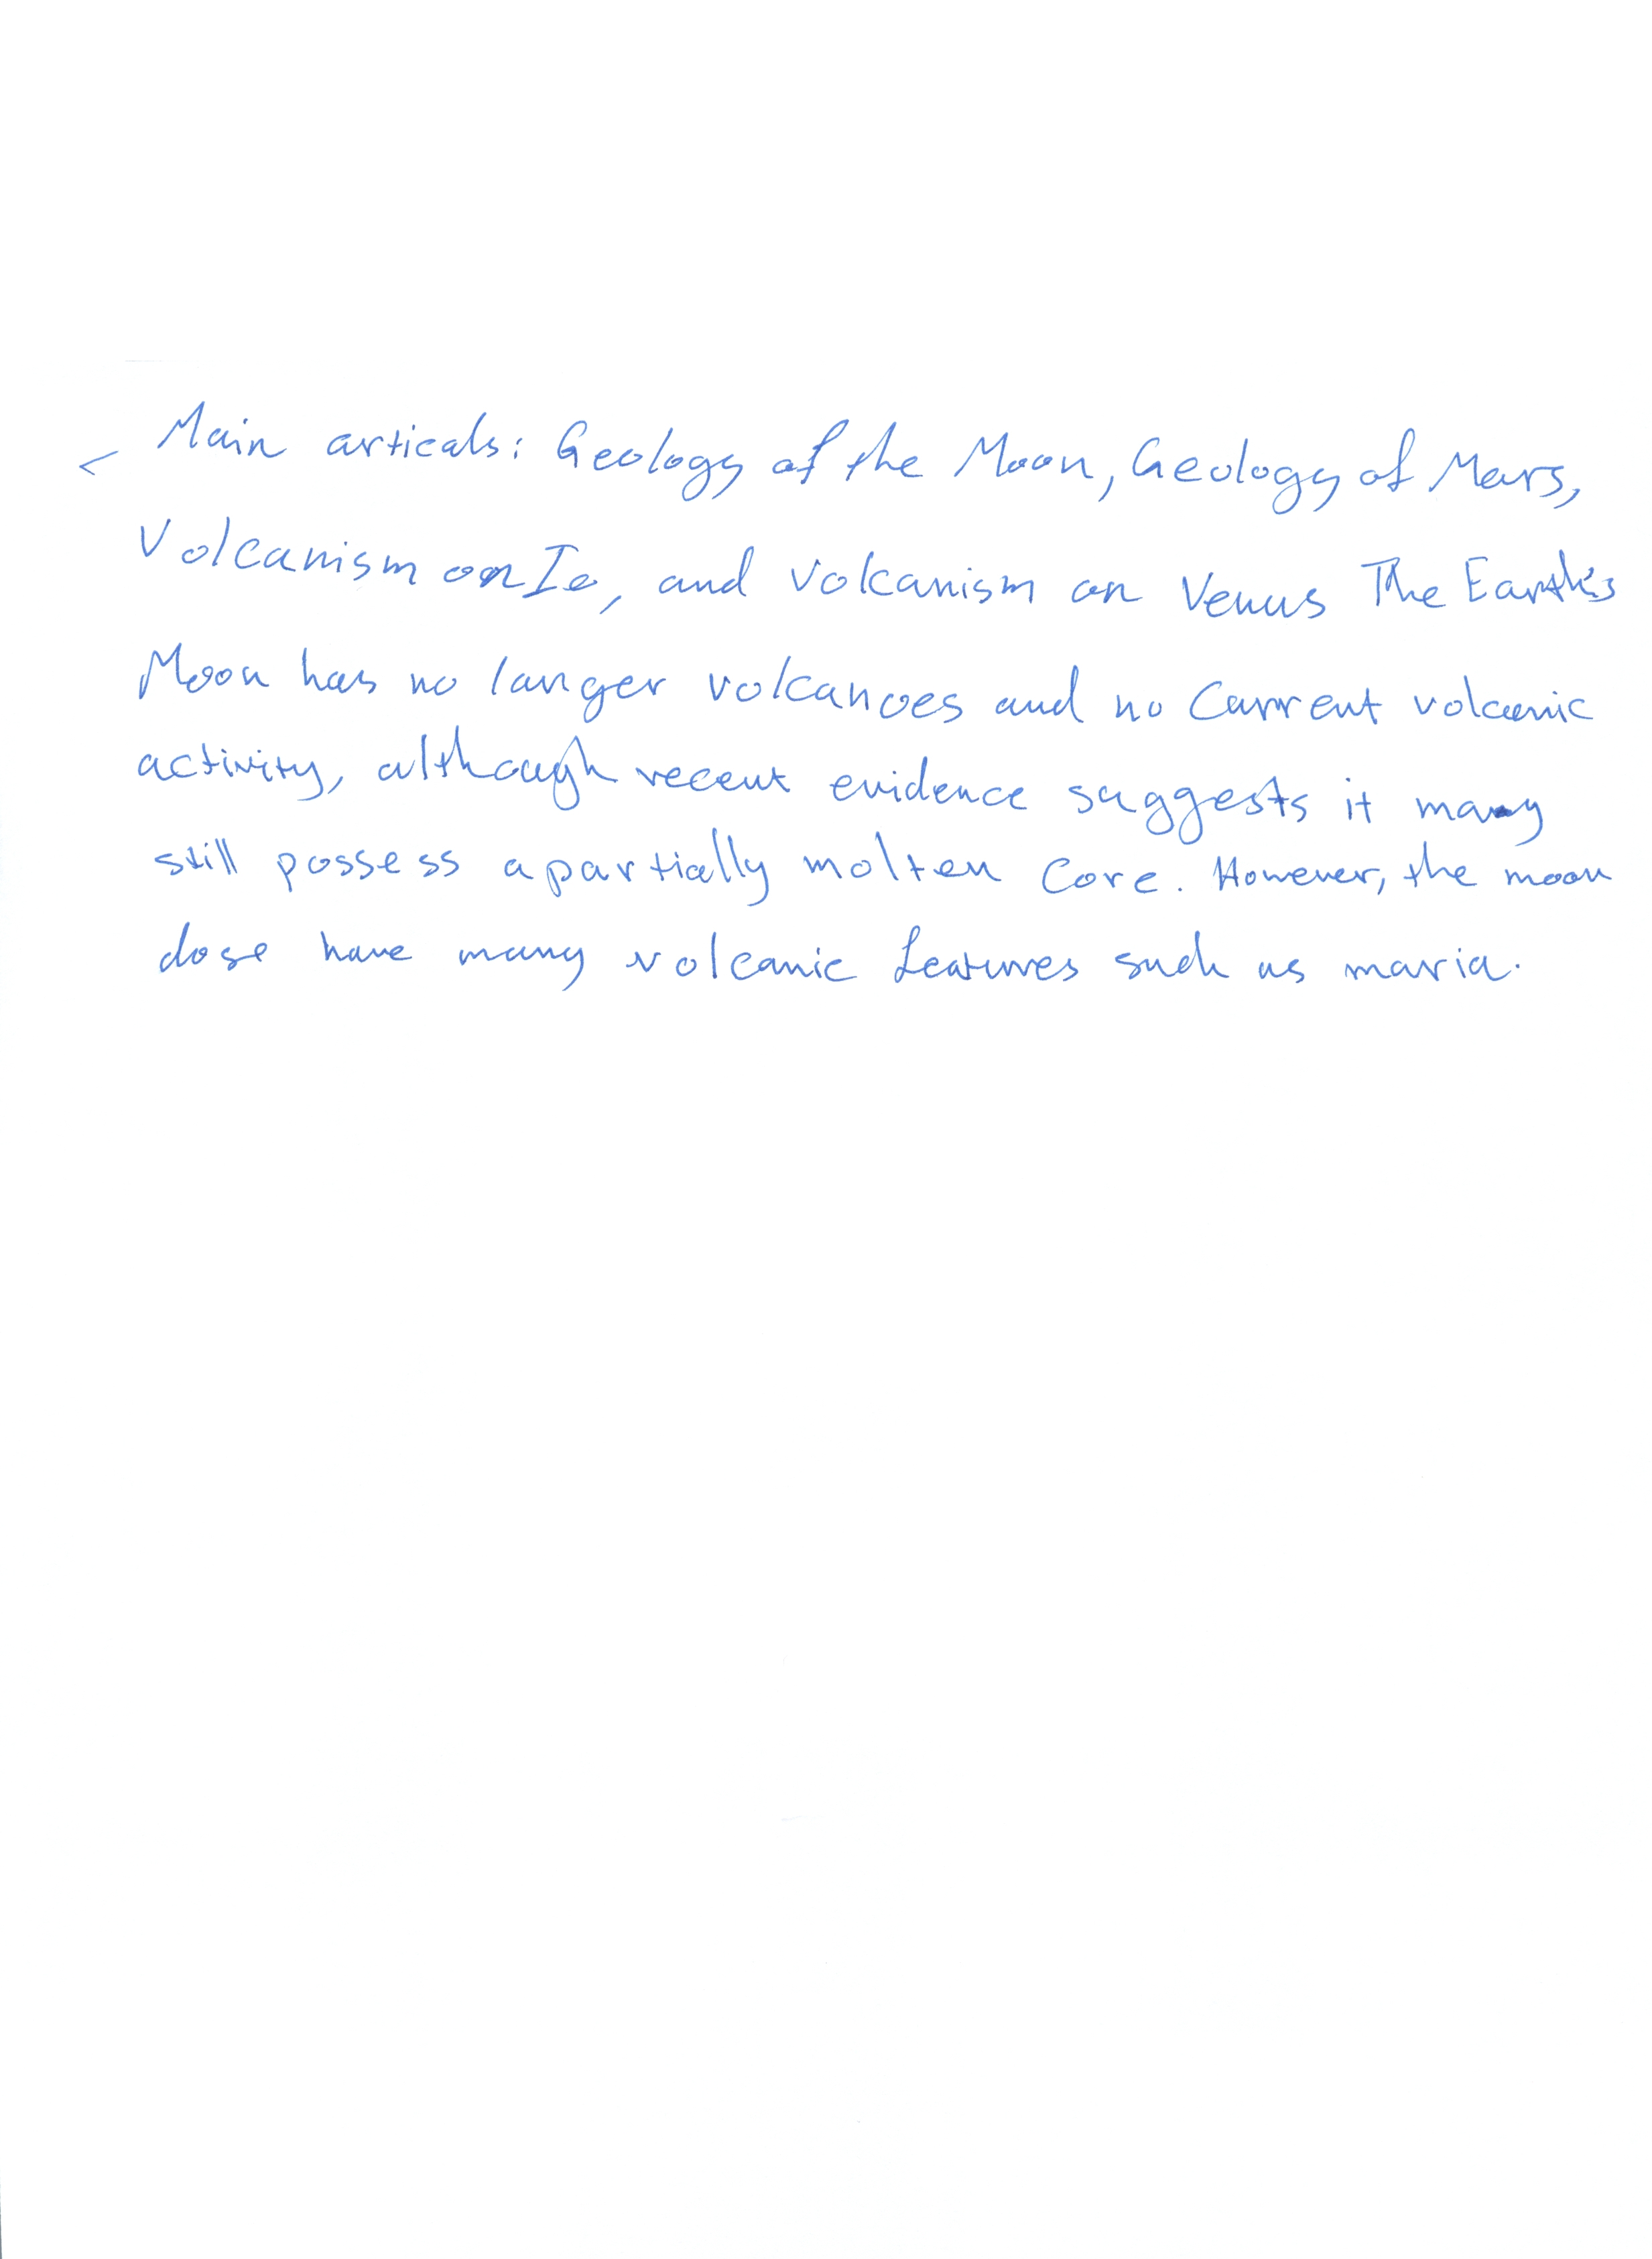 Main articals: Geology of the Moon, Geology of Mars,
Volcanism on Io, and volcanism on Venus The Earth's
Moon has no langer volcanoes and no Current volcanic
activity, although recent evidence suggests it may
still possess a partially molten core. However, the moon
dose have many volcanic features such as maria.